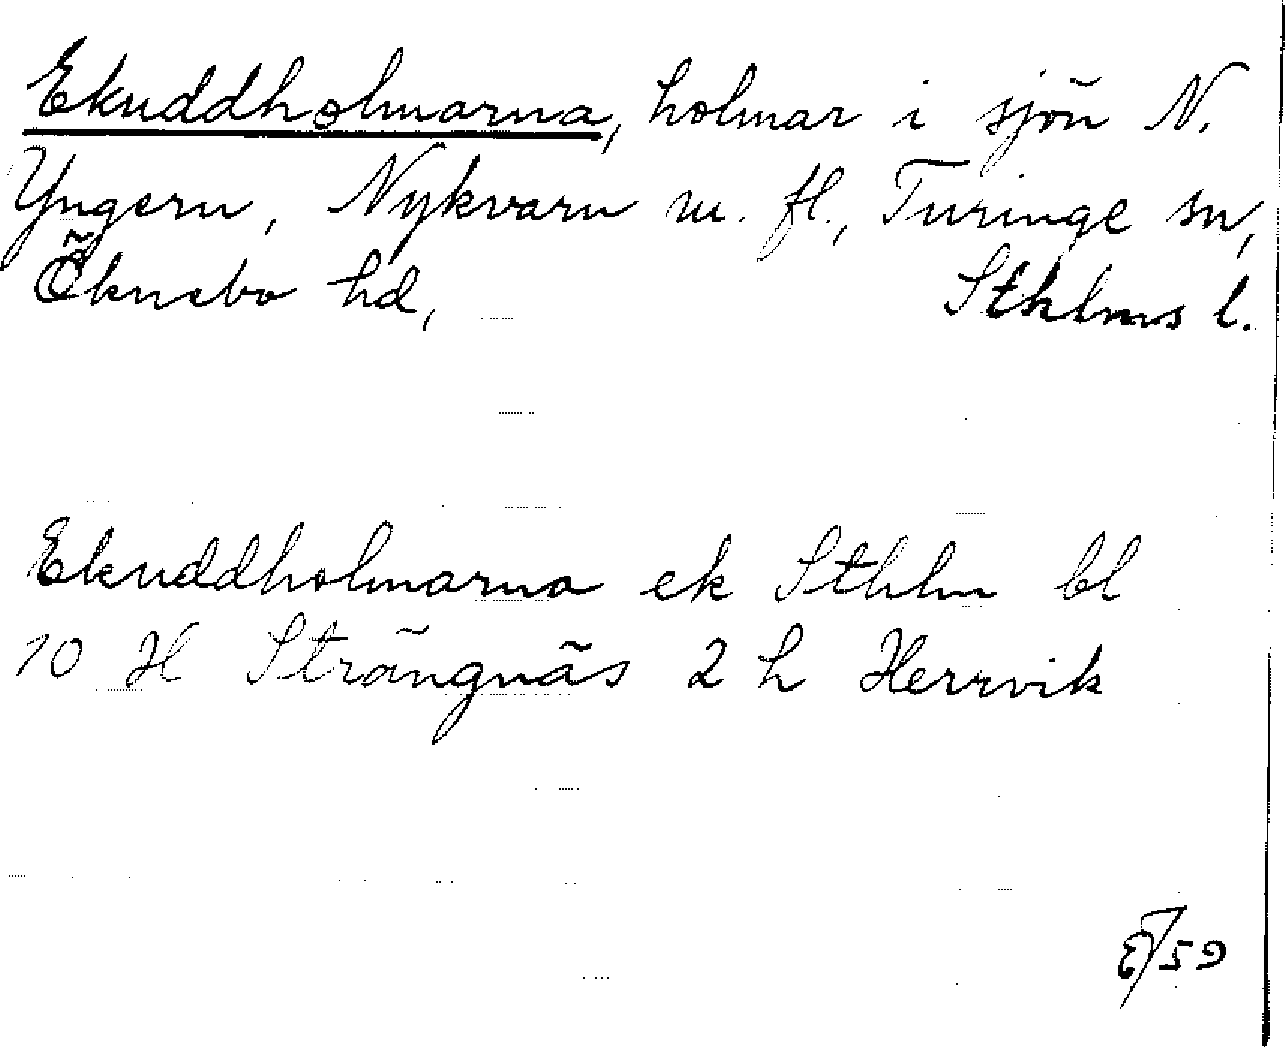 Ekuddholmarna, holmar i sjön N.
Yngern, Nykvarn m. fl., Turinge sn,
Öknebo hd, Sthlms l.
Ekuddholmarna ek Sthlm bl
10 H Strängnäs 2 h Herrvik